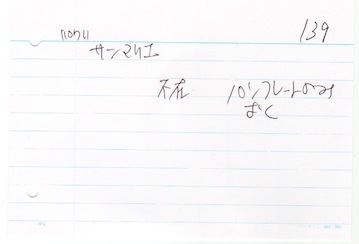 139
サンマリエ
不在 パンフレートのみ
おく